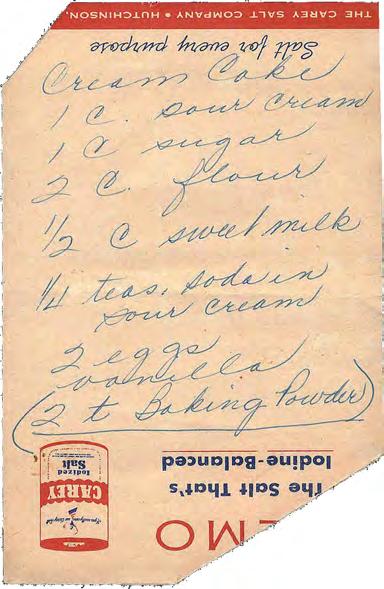 THE CAREY SALT COMPANY • HUTCHINSON,
Salt for every purpose
Cream Cake
1 C. sour cream
1 C sugar
2 C. flour
1/2 C sweet milk
1/4 teas. soda in
sour cream
2 eggs
vanilla
(2 t Baking Powder)
The Salt That's
Iodine-Balanced
CAREY
Iodized
Salt
EMO